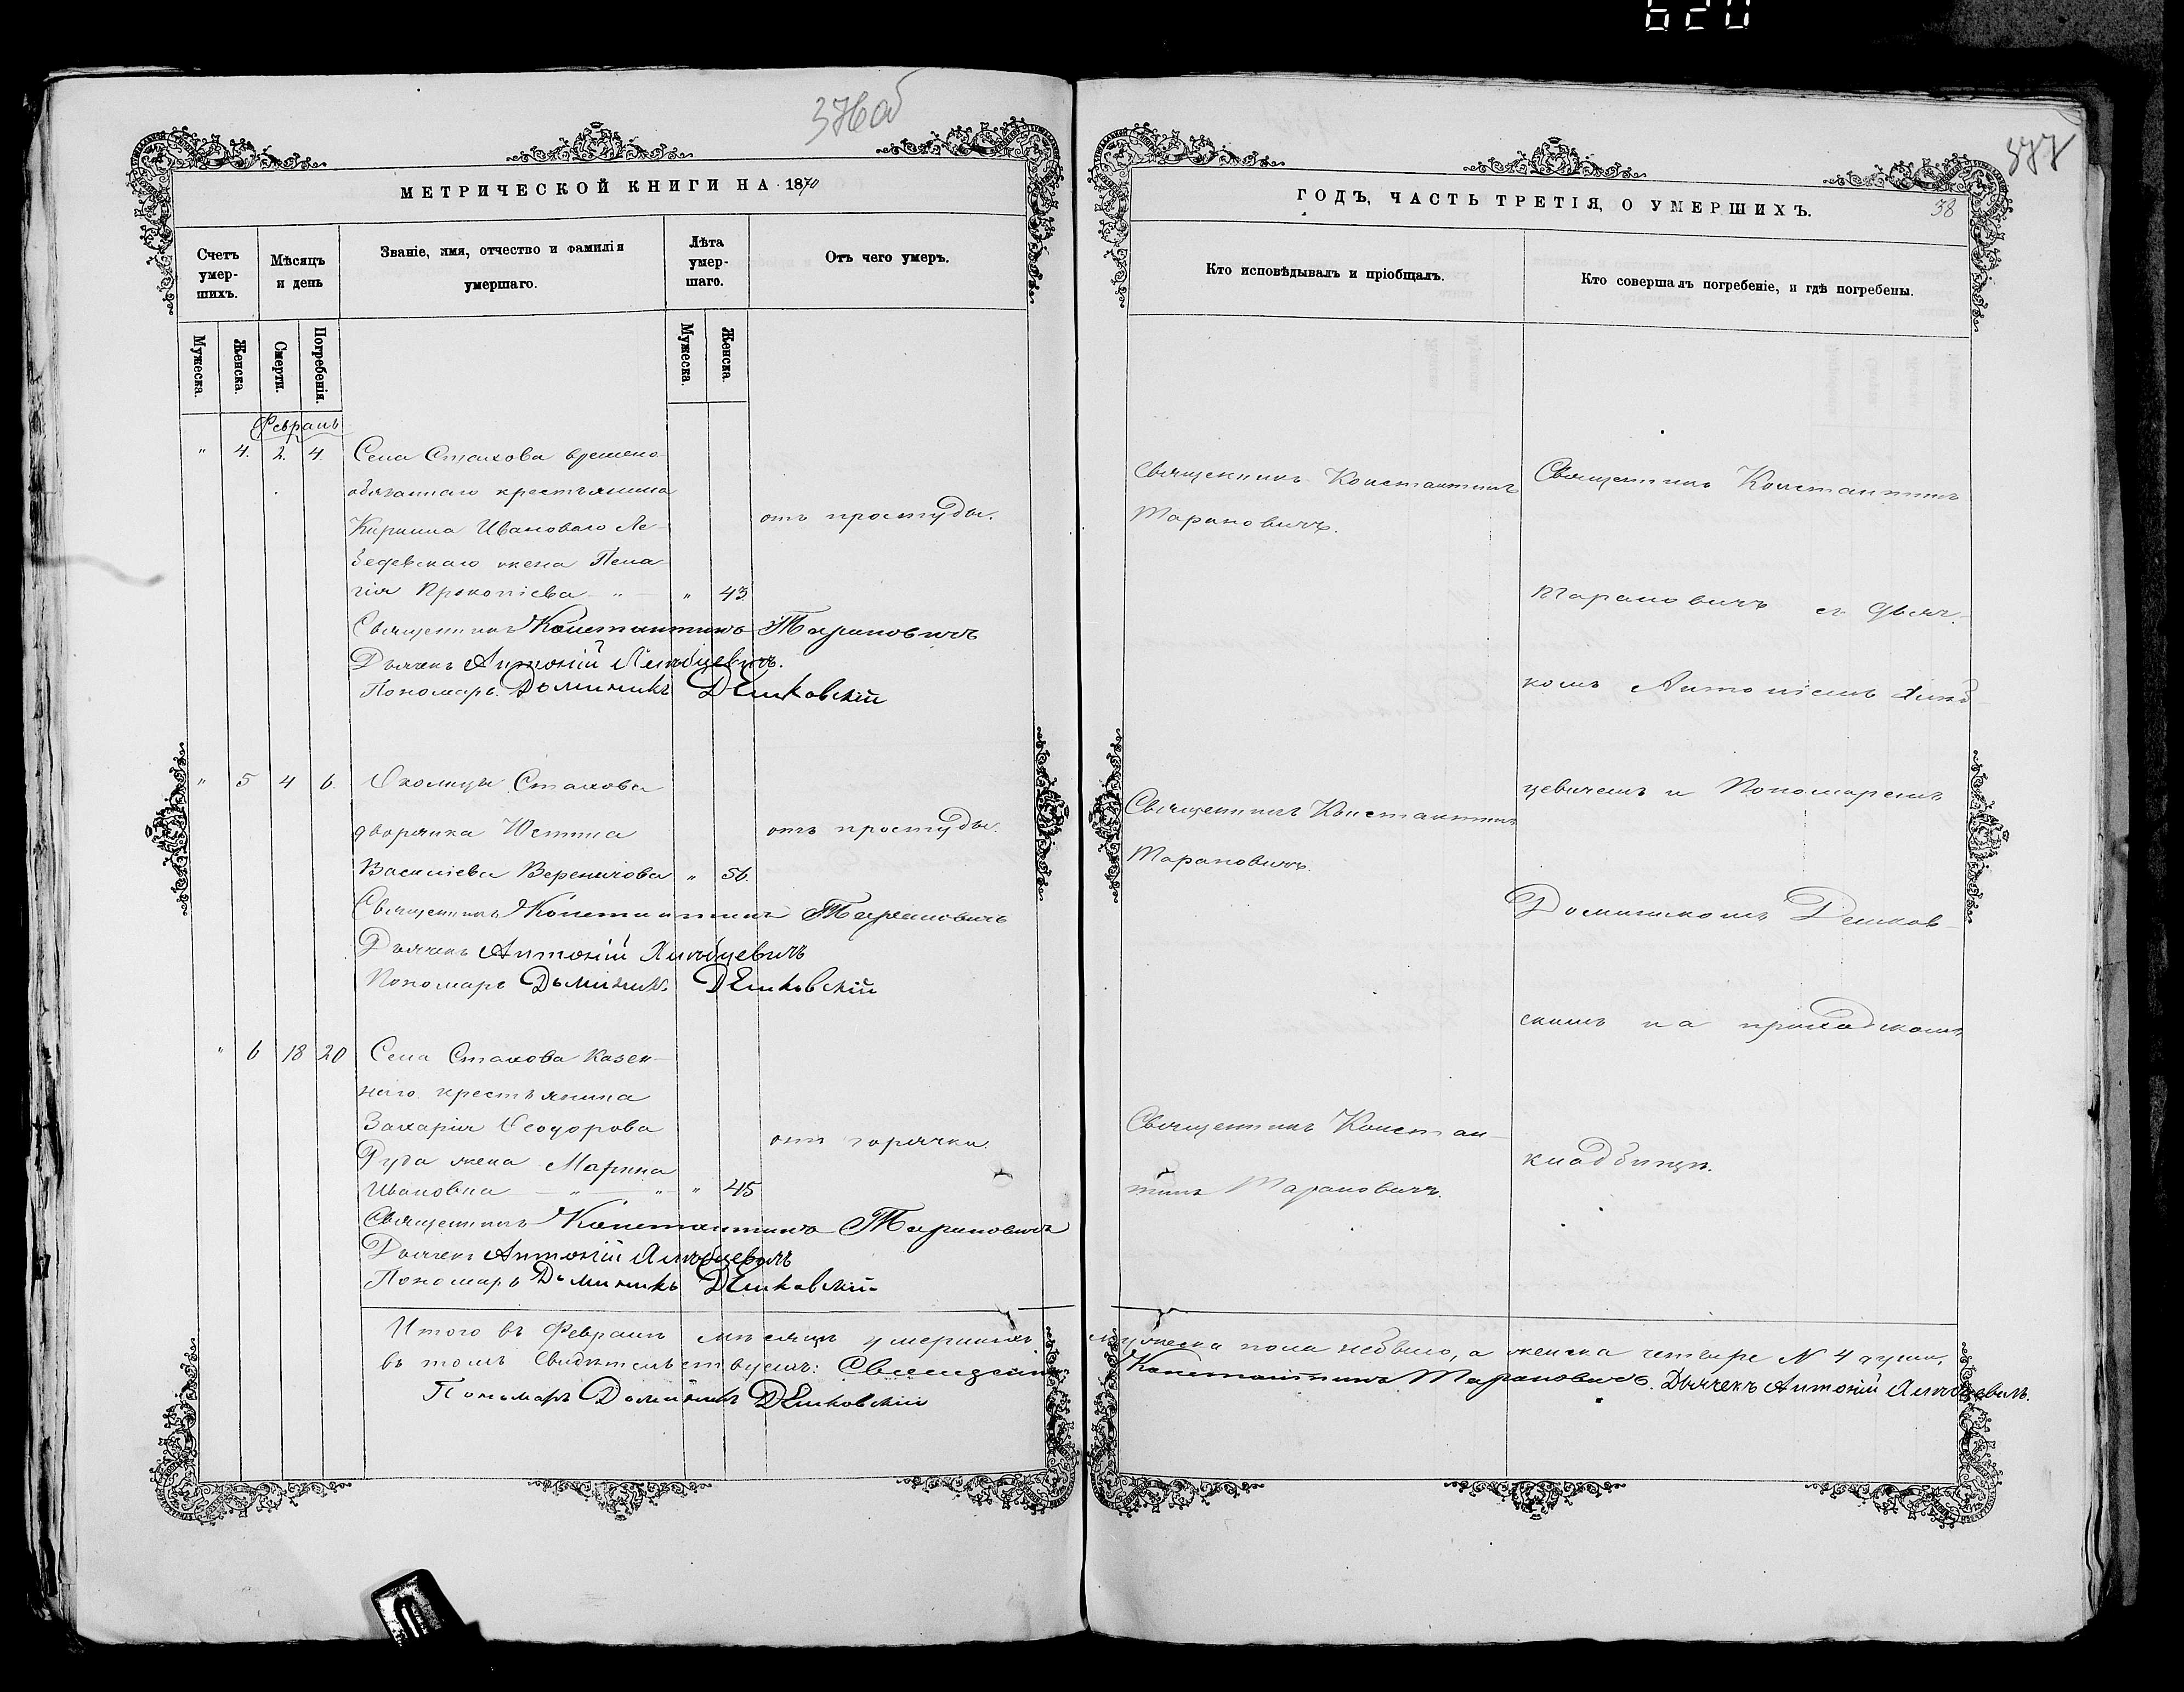 620
376об
МЕТРИЧЕСКОЙ КНИГИ НА 1870
Счетъ умер- шихъ.
Мѣсяцъ и день
Званіе, имя, отчество и фамилія
умершаго.
Лѣта умер- шаго.
Отъ чего умеръ.
Мужеска.
Женска.
Смерти.
Погребенія.
Мужеска.
Женска.
Февраль
" 4. 2. 4. Села Стахова времено-
обязаннаго крестьянина
Кирилла Иванова
отъ простуды.
жена Пела-
гія Прокопіева " " 43
Священникъ Константинъ Тарановичъ
Дьячекъ Антоній
Пономарь Доминикъ
" 5 4 6. Околицы Стахова
дворянка Устина
отъ простуды.
Василіева Вереничова " 56.
Священникъ Константинъ Тарановичъ
Дьячекъ Антоній
Пономарь Доминикъ
" 6 18 20 Села Стахова казен-
наго крестьянина
Захарія Ѳеодорова
отъ горячки.
жена Марина
Ивановна " " " 45
Священникъ Константинъ Тарановичъ
Дьячекъ Антоній
Пономарь Доминикъ
Итого въ Февралѣ мѣсяцѣ умершихъ
въ томъ свидѣтельствуемъ: Священникъ
Пономарь Доминикъ
377
ГОДЪ, ЧАСТЬ ТРЕТІЯ, О УМЕРШИХЪ.
38
Кто исповѣдывалъ и пріобщалъ.
Кто совершалъ погребеніе, и гдѣ погребены.
Священникъ Константинъ
Тарановичъ.
Священникъ Константинъ
Тарановичъ.
Священникъ Констан-
тинъ Тарановичъ.
Священникъ Константинъ
Тарановичъ съ Дьяч-
комъ Антоніемъ
цевичемъ и Пономаремъ
Доминикомъ
скимъ на приходскомъ
кладбищѣ.
мужеска пола небыло, а женска четыре № 4 души.
Константинъ Тарановичъ. Дьячекъ Антоній